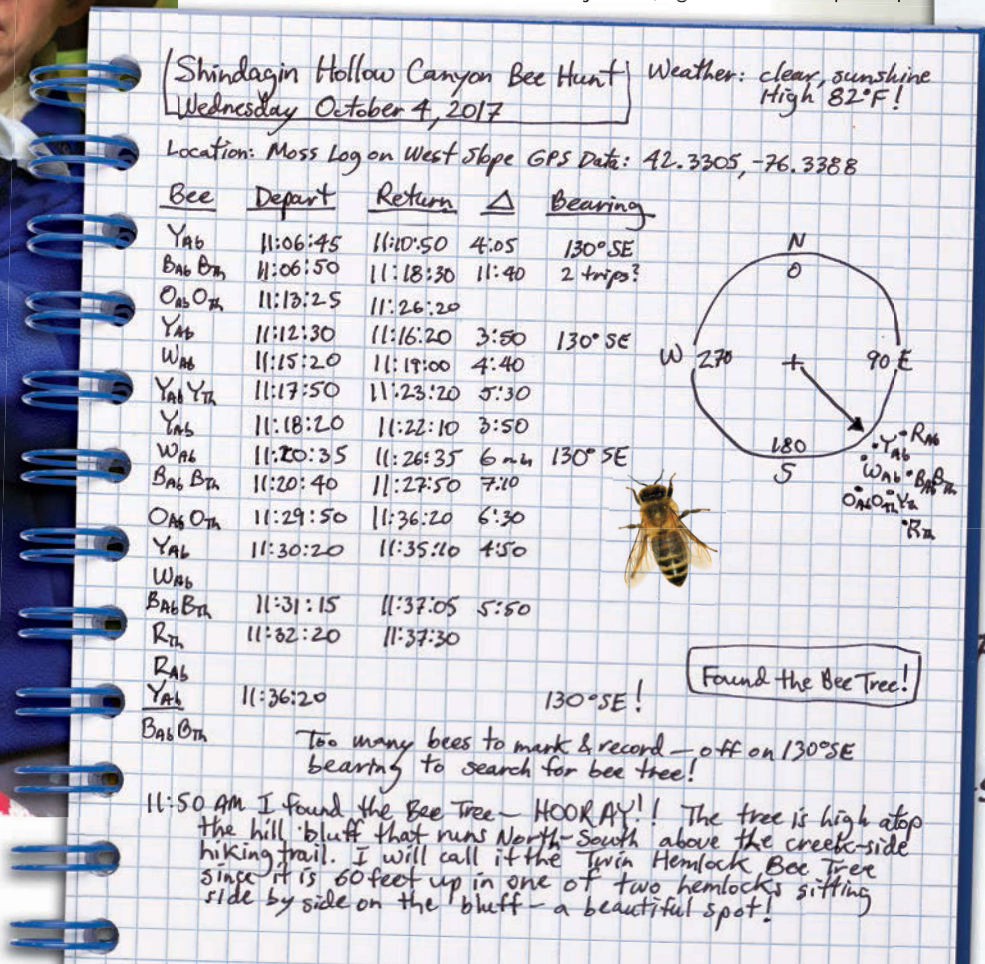 Shindagin Hollow Canyon Bee Hunt
Wednesday October 4, 2017
Weather: clear, sunshine
High 82°F!
Location: Moss Log on West Slope GPS Data: 42.3305, -76.3388
Bee Depart Return Δ Bearing
YAb 11:06:45 11:10:50 4:05 130° SE
BAb BTh 11:06:50 11:18:30 11:40 2 trips?
OAb OTh 11:13:25 11:26:20
YAb 11:12:30 11:16:20 3:50 130° SE
WAb 11:15:20 11:19:00 4:40
YAb YTh 11:17:50 11:23:20 5:30
YAb 11:18:20 11:22:10 3:50
WAb 11:20:35 11:26:35 6 min 130° SE
BAb BTh 11:20:40 11:27:50 7:10
OAb OTh 11:29:50 11:36:20 6:30
YAb 11:30:20 11:35:10 4:50
WAb
BAb BTh 11:31:15 11:37:05 5:50
RTh 11:32:20 11:37:30
RAb
YAb 11:36:20 130° SE!
BAb BTh
N
0
W 270 + 90 E
180
S
RAb
YAb
WAb BAb BTh
OAb OTh YTh
RTh
Found the Bee Tree!
Too many bees to mark & record — off on 130° SE
bearing to search for bee tree!
11:50 AM I found the Bee Tree — HOORAY!! The tree is high atop
the hill bluff that runs North-South above the creek-side
hiking trail. I will call it the Twin Hemlock Bee Tree
since it is 60 feet up in one of two hemlocks sitting
side by side on the bluff — a beautiful spot!